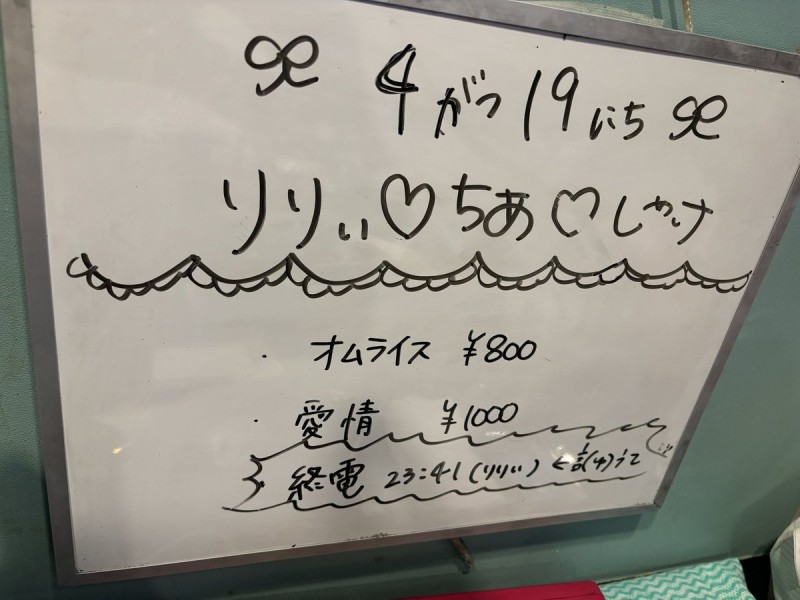 4がつ19にち
りりぃ♡ちあ♡しゃけ
・オムライス ¥800
・愛情 ¥1000
終電 23:41(りりぃ)